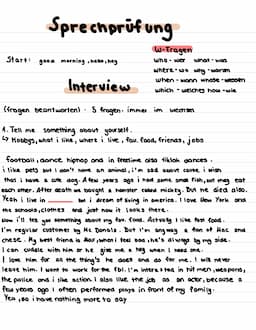 Sprechprüfung
W-Fragen
Start: good morning, hello, hey
who - wer what - was
where - wo why - warum
when - wann whose - wessen
which - welches how - wie
Interview
(Fragen beantworten) - 5 fragen immer im
1. Tell me something about yourself.
↳ Hobbys, what i like, where i live, fav. food, friends, jobs
football, dance hiphop and in freetime also tiktok dances.
i like pets but i don't have an animal, i'm sad about cause i wish
that i have a cute dog. A few years ago i had some and fish, but they eat
each other. After death we bought a hamster called mickey. But he died also.
Yeah i live in ______ but i dream of living in america. i love New York and
the schools, clothes and just how it looks there.
Now i'll tell you something about my fav. food. Actually I like fast food.
I'm regular customer by Mc Donalds. But I'm anyway a fan of Mac and
cheese. My best friend is Aar, when i feel bad, he's always by my side.
I can cuddle with him or he give me a hug when I need one.
I love him for all the thing's he does and do for me. I will never
leave him. I want to work for the FBI. I'm interested in hit men, weapons,
the police and i like action. I also like the job as an actor, because a
few years ago I often performed plays in front of my family.
Yea, so i have nothing more to say